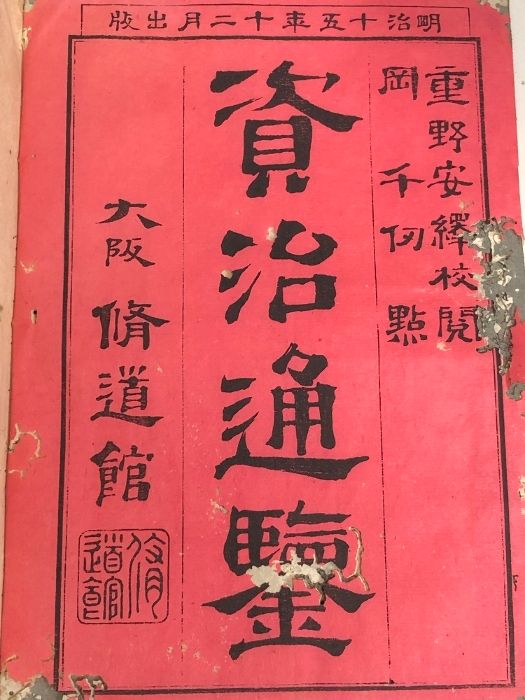 明治十五年十二月出版
重野安繹校閲
岡千仞點
資治通鑒
大阪 脩道館
脩道館